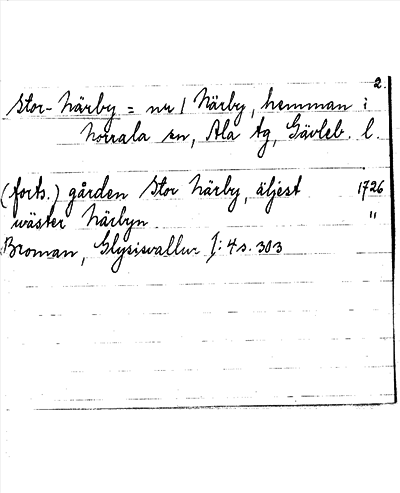 2.
Stor-Närby = nr 1 Närby, hemman i
Norrala sn, Ala tg, Gävleb. l.
(forts.) gården Stor Närby, äljest 1726
wäster Närbyn. "
Broman, Glysisvallur I: 4 s. 303